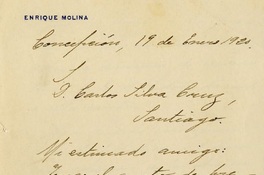 ENRIQUE MOLINA
Concepción, 19 de Enero 1920.
S.
D. Carlos Silva Cruz,
Santiago.
Mi estimado amigo: